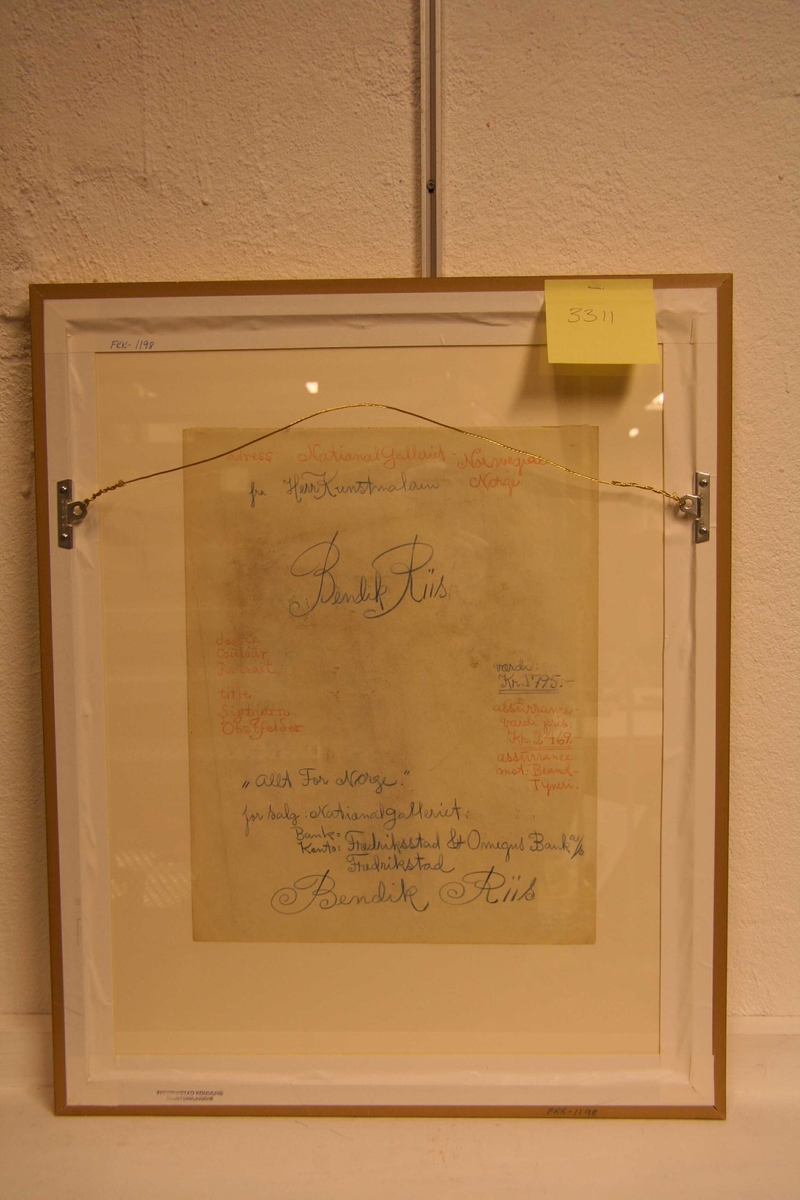 3311
FKK-1198
adress: NationalGalleriet Norwegian
Norge
fra Herr Kunstmalam
Bendik Riis
Couleur
Portrait
title
Sigbjørn
Obstfelder
værdi:
Kr. 1795.-
assurranse-
værdi pus:
Kr. 2169.-
assurranse
mot: Brand-
Tyveri.
„Allt For Norge."
for salg. NationalGalleriet:
Bank=
Konto: Fredriksstad & Omegns Bank a/s
Fredrikstad
Bendik Riis
FKK-1198